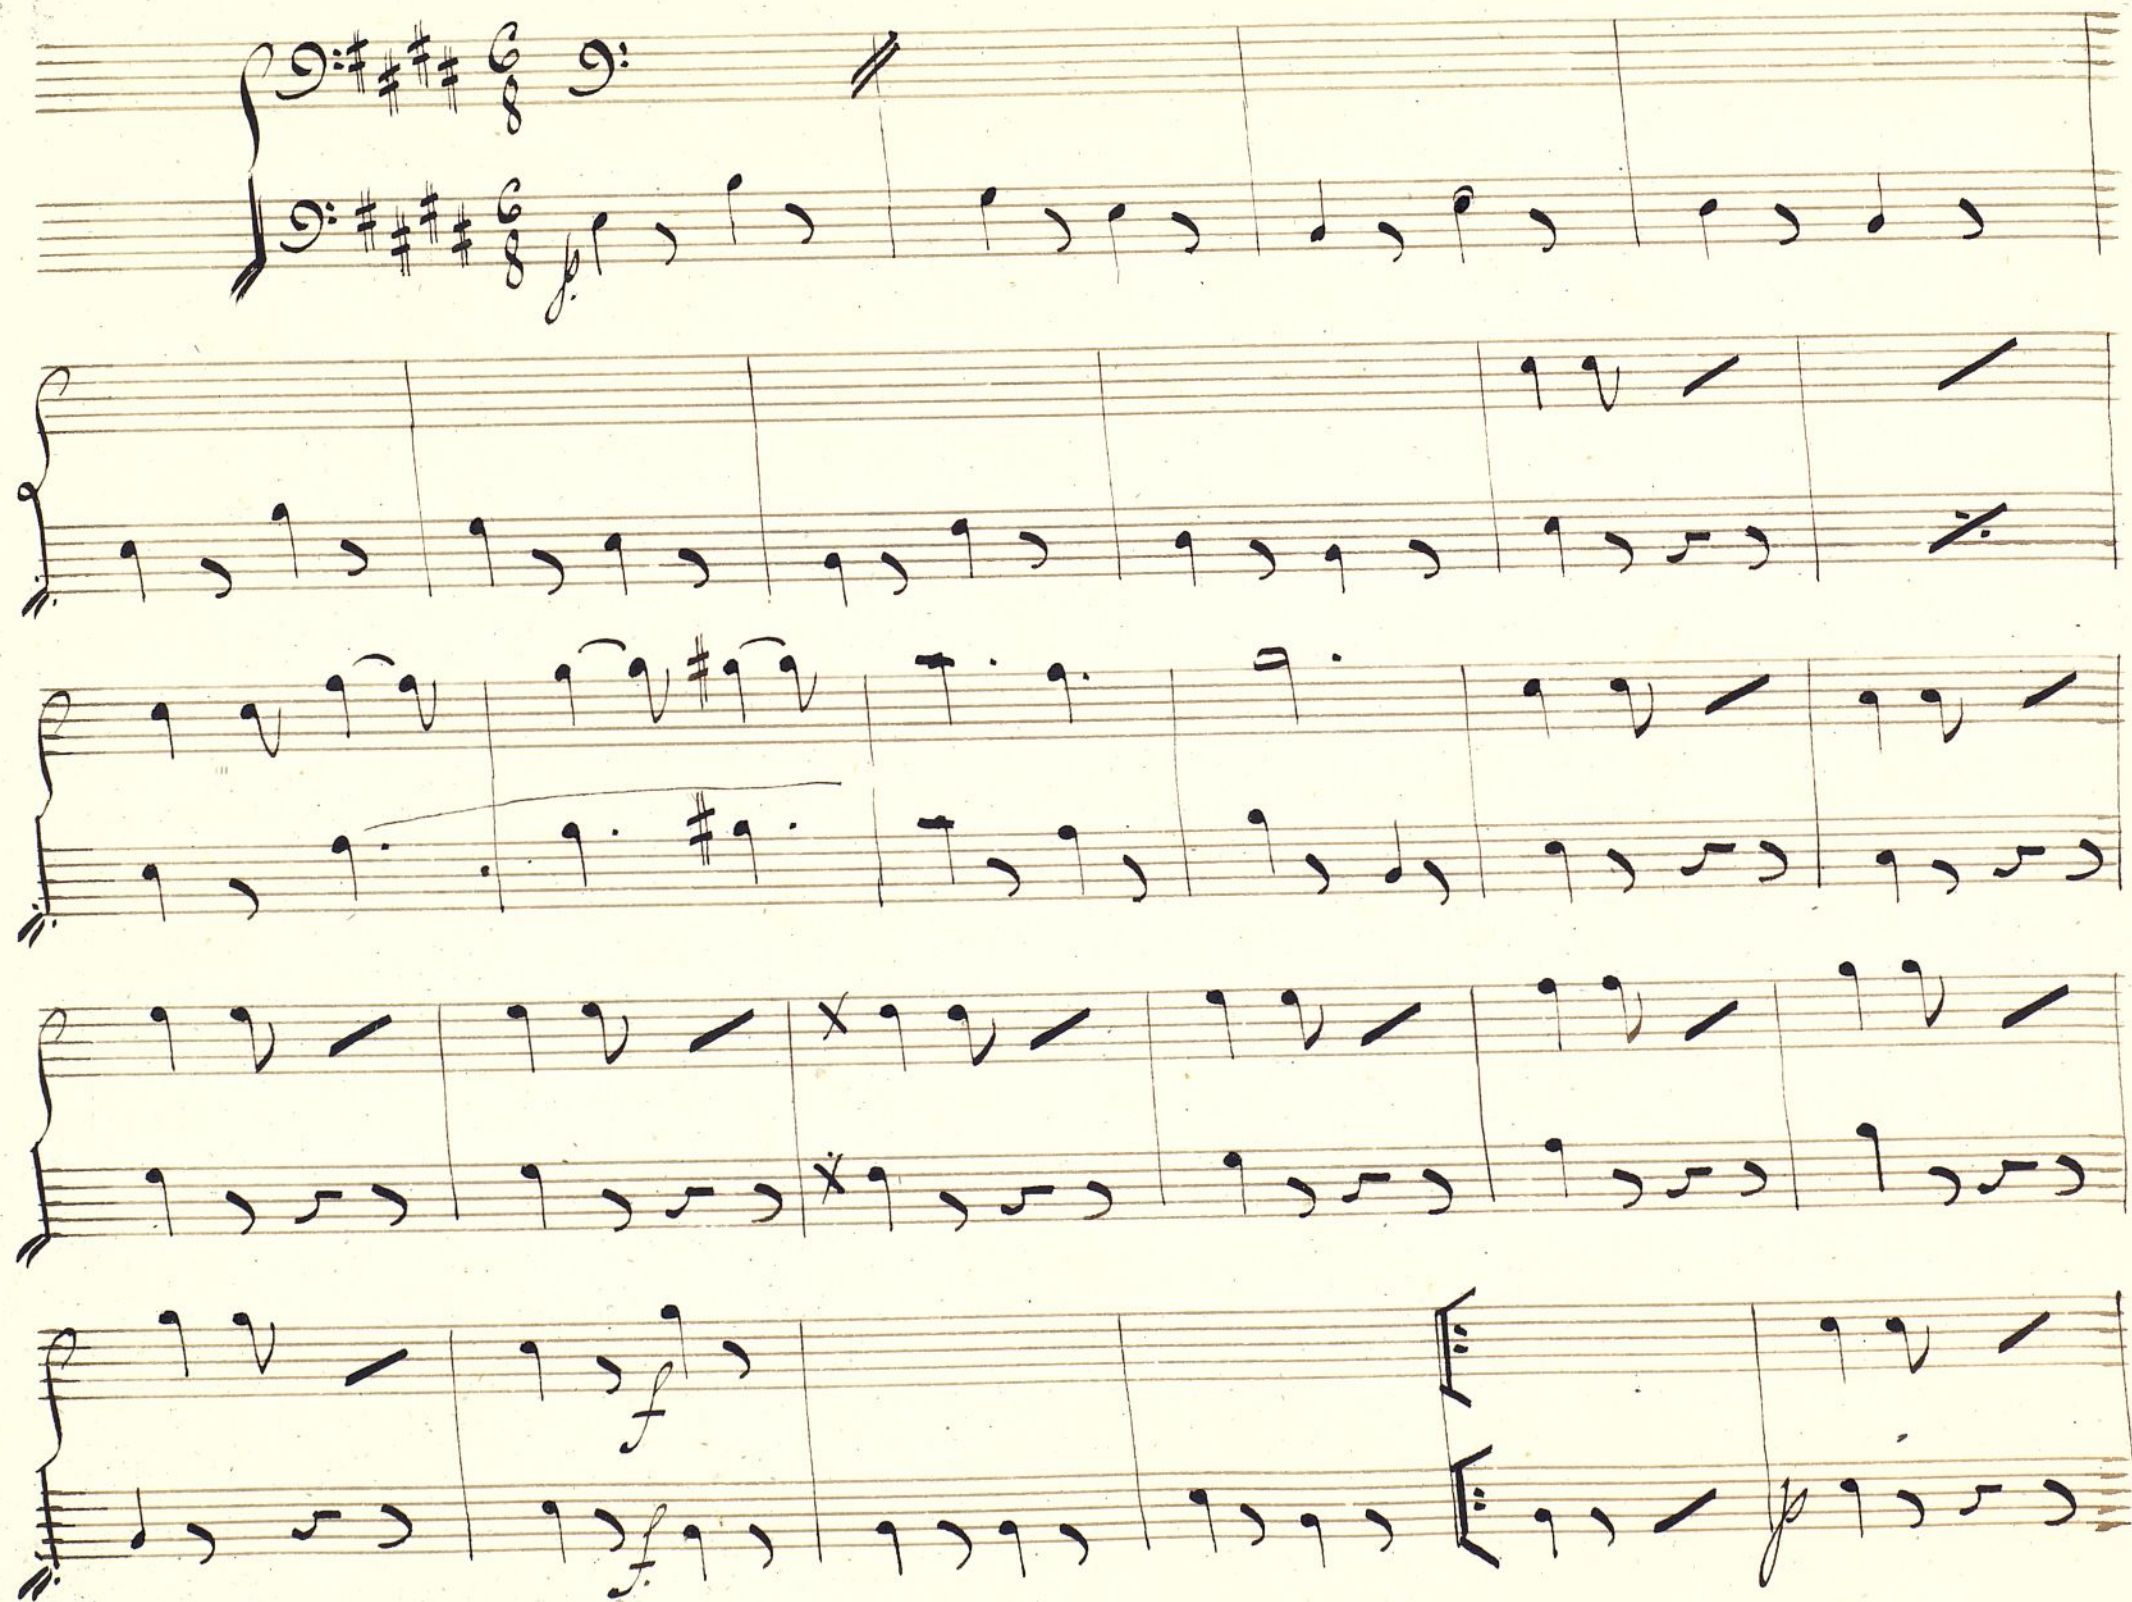 6
8
6
8
p.
f
f.
p